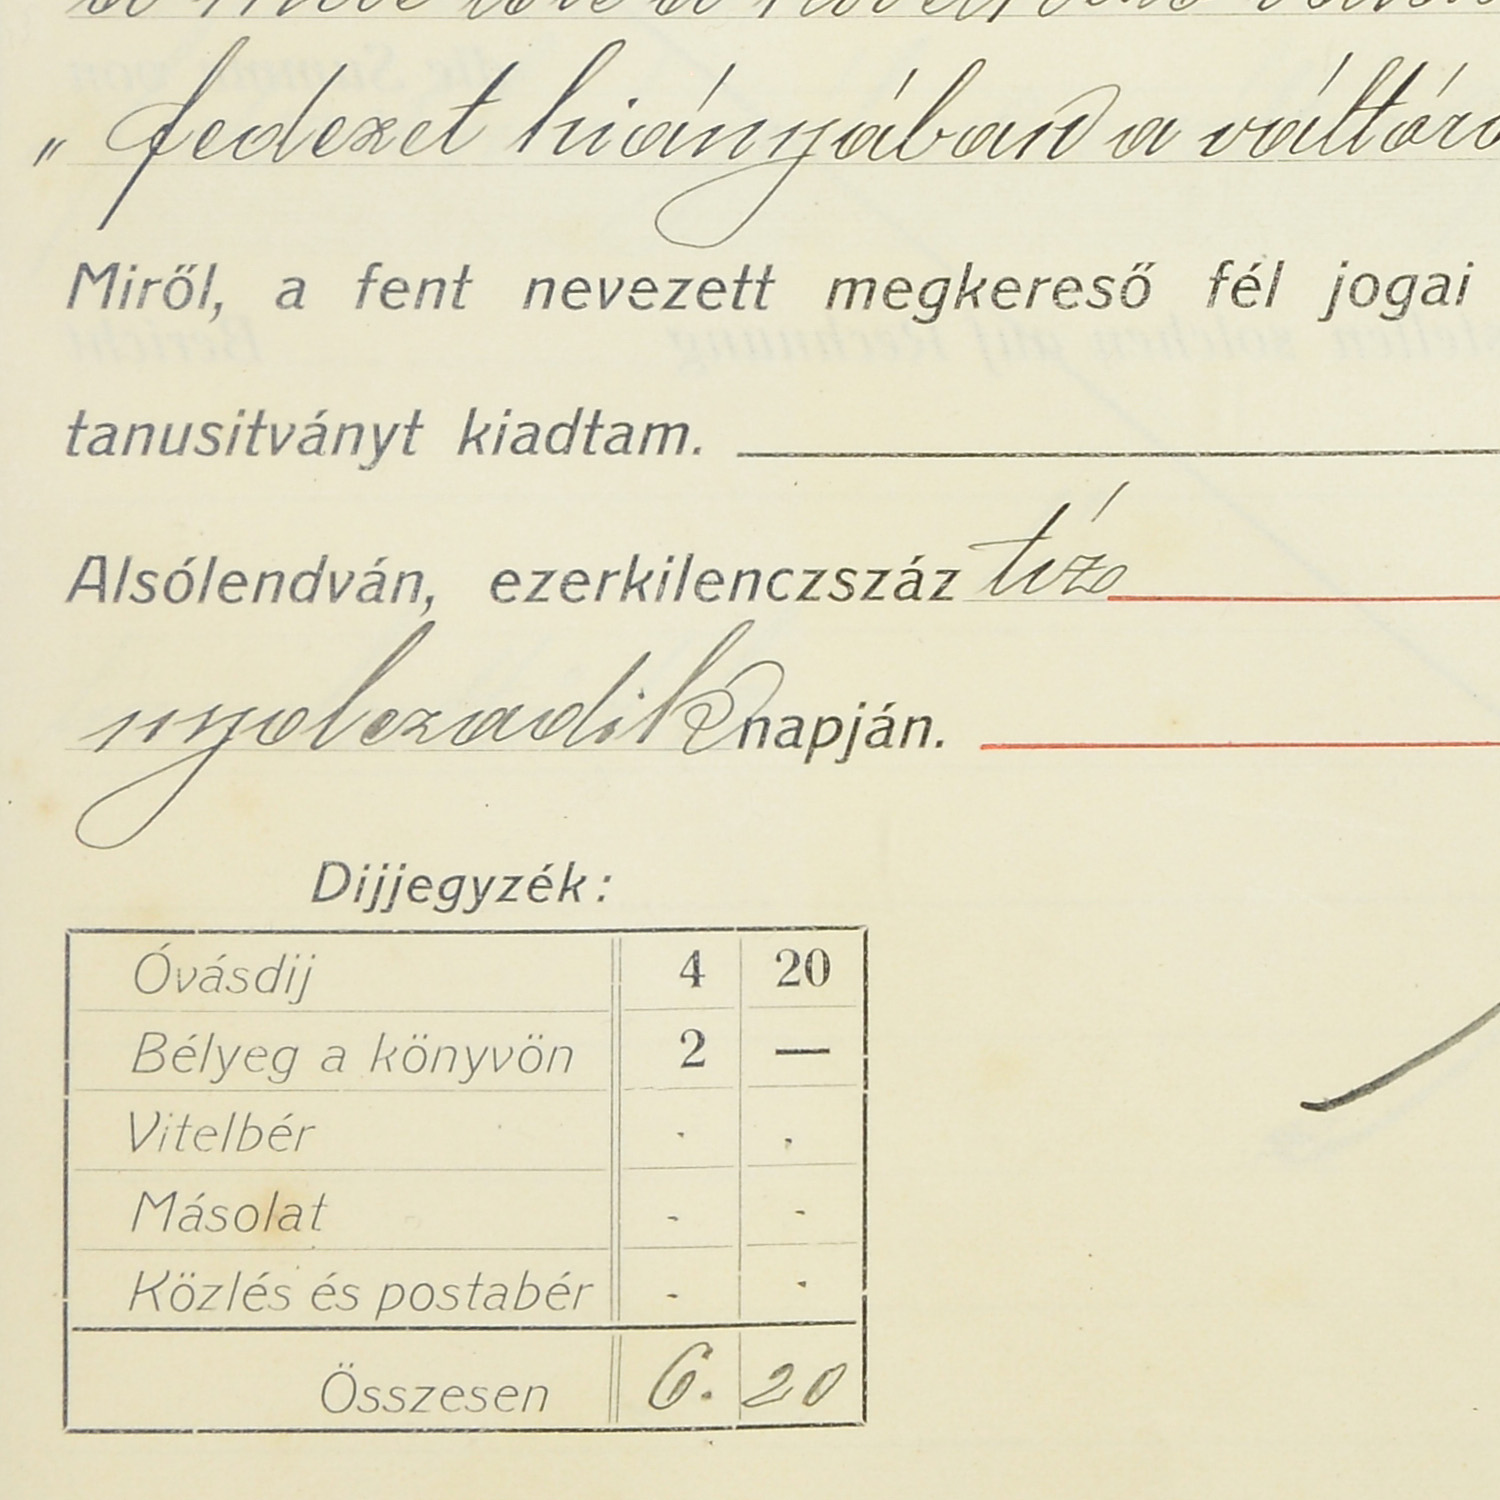 „ fedezet hiányában a váltóra
Miről, a fent nevezett megkereső fél jogai
tanusitványt kiadtam.
Alsólendván, ezerkilenczszáz tíz
nyolczadik napján.
Dijjegyzék:
Óvásdij 4 20
Bélyeg a könyvön 2 —
Vitelbér . .
Másolat - -
Közlés és postabér - -
Összesen 6. 20